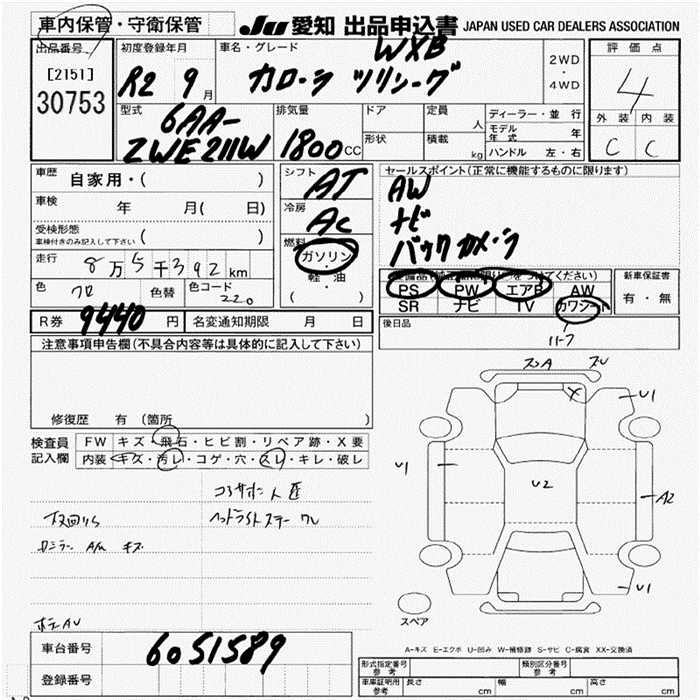 車内保管・守衛保管
JU 愛知 出品申込書 JAPAN USED CAR DEALERS ASSOCIATION
出品番号
[2151]
30753
初度登録年月
R2 9月
車名・グレード
WXB
カローラ ツーリング
2WD
・
4WD
評価点
4
外装 内装
C C
型式
6AA-
ZWE211W
排気量
1800CC
ドア
形状
定員 人
積載 kg
ディーラー・並行
モデル年式 年
ハンドル 左・右
車歴
自家用・( )
車検
年 月( 日)
受検形態
車検付きのみ記入して下さい ( )
走行
8万5千392km
色
クロ
色替
色コード
220
シフト
AT
冷房
AC
燃料
ガソリン
・
軽・油
セールスポイント(正常に機能するものに限ります)
AW
ナビ
バックカメラ
PS PW エアB AW
SR ナビ TV カワシート
ハーフ
新車保証書
有・無
後日品
R券 9440円
名変通知期限 月 日
注意事項申告欄(不具合内容等は具体的に記入して下さい)
修復歴 有 (箇所 )
検査員
記入欄
FW キズ・飛石・ヒビ割・リペア跡・X要
内装 キズ・汚レ・コゲ・穴・スレ・キレ・破レ
スレA
X
U1
U1
U2
A2
U1
スペア
A-キズ E-エクボ U-凹み W-補修跡 S-サビ C-腐食 XX-交換済
車台番号
6051589
登録番号
形式指定番号
参考
類別区分番号
参考
車庫証明用
参考
長さ cm
幅 cm
高さ cm